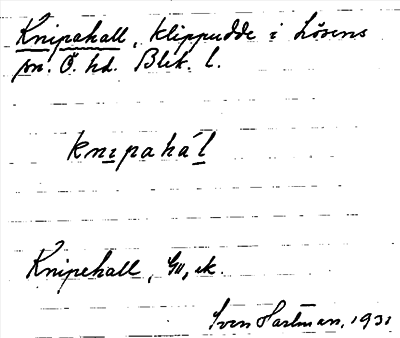 Knipahall, klippudde i Lösens
sn. Ö. hd. Blek. l.
knıpahál
Knipehall, GU, ek.
Sven Hartman, 1931